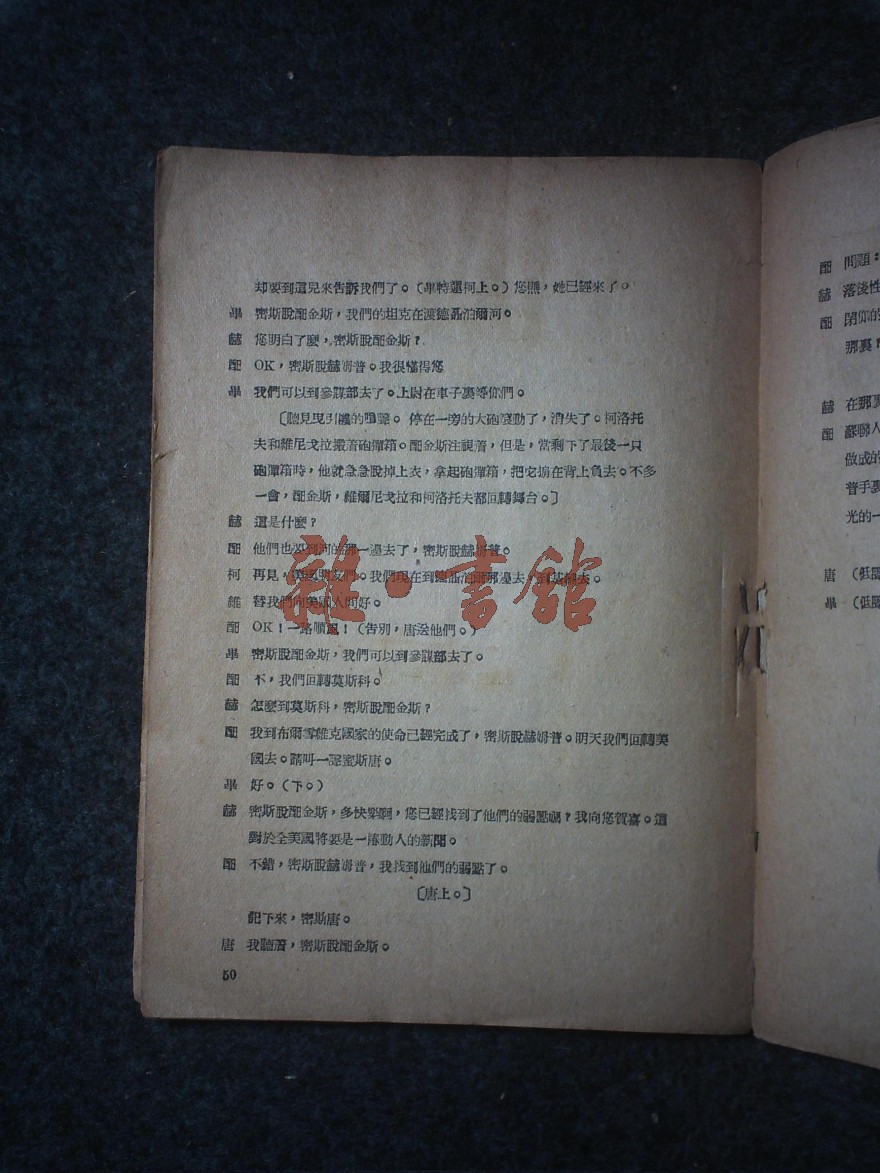 却要到這兒來告訴我們了。(畢特蓮柯上。)您瞧，她已經來了。
畢 密斯脫酏金斯，我們的坦克在渡德聶泊爾河。
赫 您明白了麼，密斯脫酏金斯？
酏 OK，密斯脫赫姆普。我很懂得您
畢 我們可以到參謀部去了。上尉在車子裏等你們。
〔聽見曳引機的聲。停在一旁的大砲發動了，消失了。柯洛托
夫和維尼戈拉搬着砲彈箱。酏金斯注視着，但是，當剩下了最後一只
砲彈箱時，他就急急脫掉上衣，拿起砲彈箱，把它揹在背上負去。不多
一會，酏金斯，維爾尼戈拉和柯洛托夫都囘轉舞台。〕
赫 這是什麼？
酏 他們也要到河的那一邊去了，密斯脫赫姆普。
柯 再見，美國朋友們。我們現在到德聶泊爾那邊去，到基輔去。
維 替我們向美國人問好。
酏 OK！一路順風！(告別，唐送他們。)
畢 密斯脫酏金斯，我們可以到參謀部去了。
酏 不，我們囘轉莫斯科。
赫 怎麼到莫斯科，密斯脫酏金斯？
酏 我到布爾雪維克國家的使命已經完成了，密斯脫赫姆普。明天我們囘轉美
國去。請叫一聲蜜斯唐。
畢 好。(下。)
赫 密斯脫酏金斯，多快樂啊，您已經找到了他們的弱點嗎？我向您賀喜。這
對於全美國將要是一樁動人的新聞。
酏 不錯，密斯脫赫姆普，我找到他們的弱點了。
〔唐上。〕
記下來，密斯唐。
唐 我聽着，密斯脫酏金斯。
50
雜·書館
酏 問題：
赫 落後性
酏 閉你的
那裏？
赫 在那裏
酏 蘇聯人
做成的
普手裏
光的一
唐 (低
畢 (低